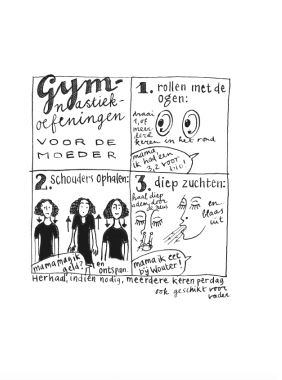 Gym-
nastiek-
oefeningen
VOOR DE
MOEDER
1. rollen met de
ogen:
draai
1, of
meer-
dere
keren in het rond
mama,
ik had een
3,2 voor
bio!
2. schouders ophalen:
mama mag ik
geld?
en
ontspan.
3. diep zuchten:
haal diep
adem door
de neus
en
blaas
uit
mama ik eet
bij Wouter!
Herhaal, indien nodig, meerdere keren per dag
ook geschikt voor
vader